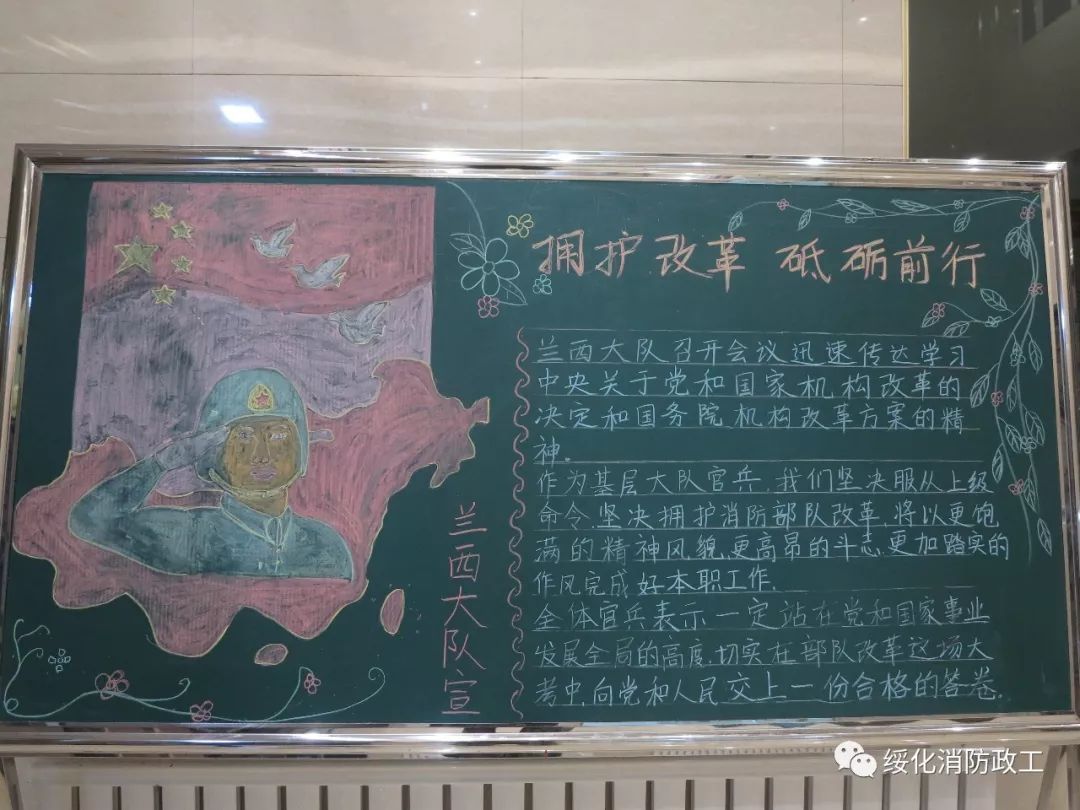 拥护改革 砥砺前行
兰西大队召开会议迅速传达学习
中央关于党和国家机构改革的
决定和国务院机构改革方案的精
神。
作为基层大队官兵,我们坚决服从上级
命令,坚决拥护消防部队改革,将以更饱
满的精神风貌,更高昂的斗志,更加踏实的
作风完成好本职工作.
全体官兵表示一定站在党和国家事业
发展全局的高度,切实在部队改革这场大
考中,向党和人民交上一份合格的答卷.
兰西大队宣
绥化消防政工